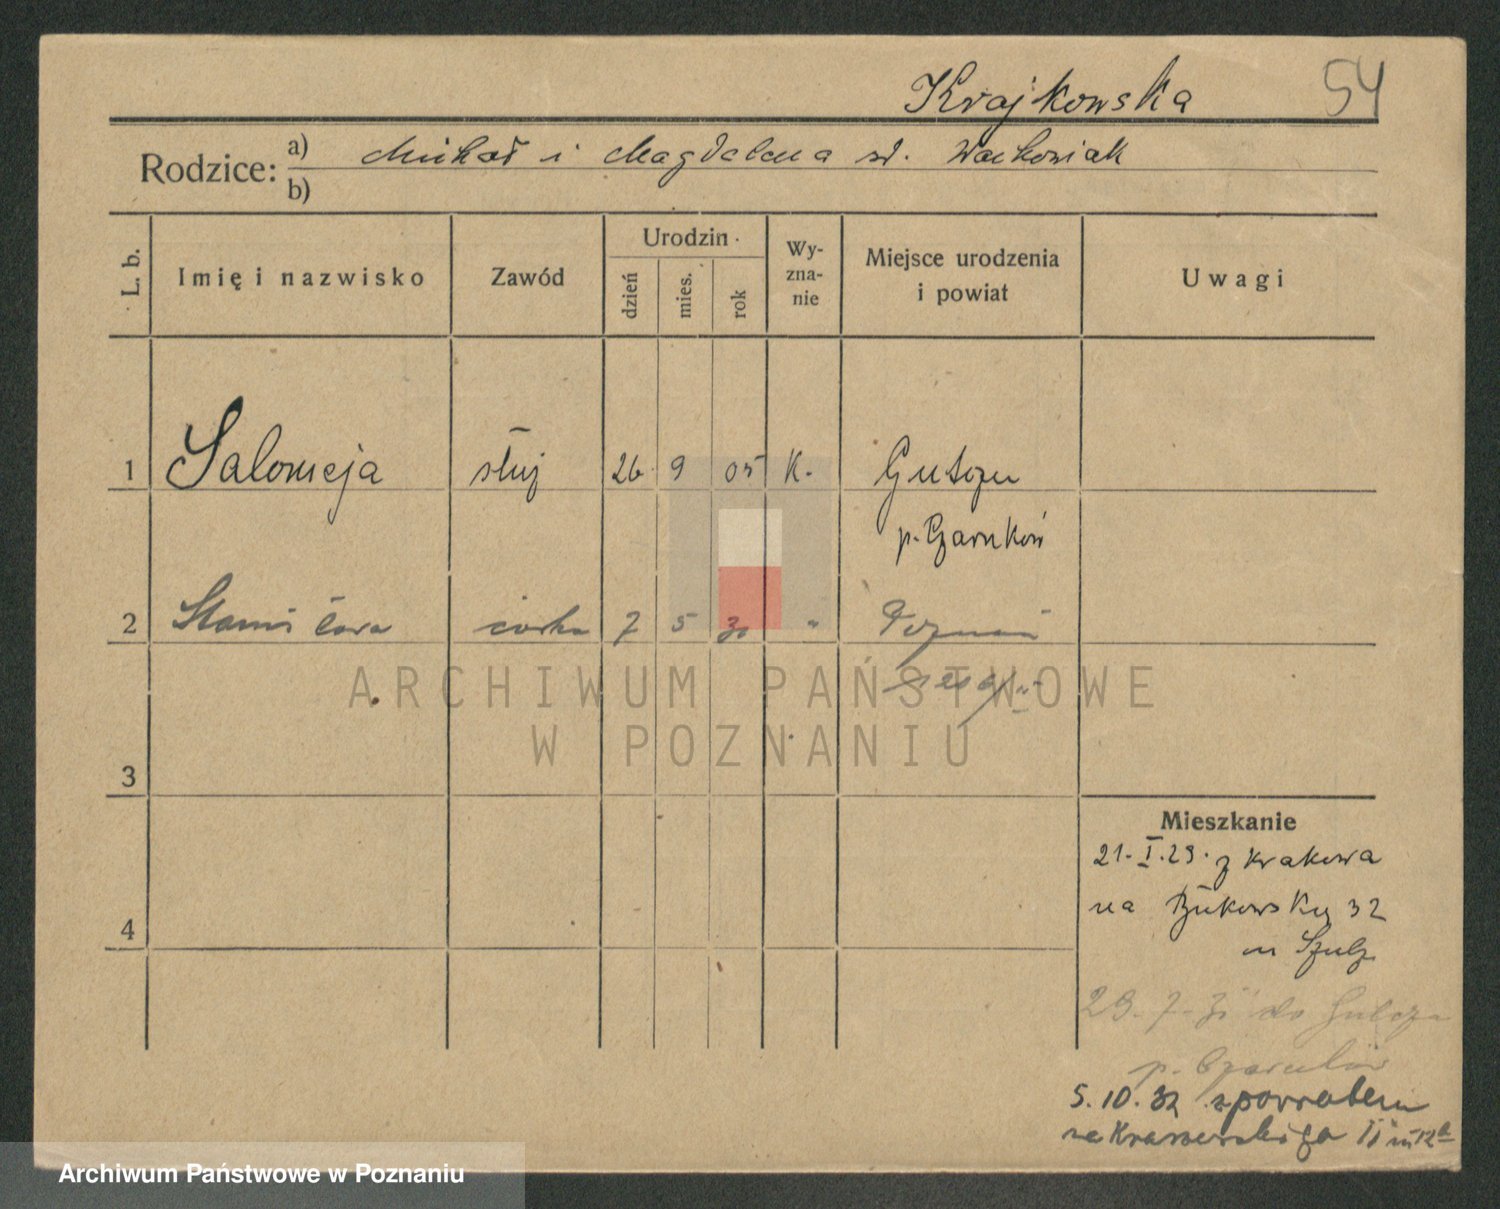 Krajkowska 54
Rodzice: a) Michał i Magdalena st. Wachowiak
b)
L. b. Imię i nazwisko Zawód Urodzin Wyznanie Miejsce urodzenia i powiat Uwagi
dzień mies. rok
1 Salomeja służ 26 9 05 K. Gulczu
p. Czarnków
2 Stanisława córka 7 5 30 " Poznań
ARCHIWUM PAŃSTWOWE
W POZNANIU
3
4
Mieszkanie
21. I. 29. z Krakowa
na Bukowską 32
m Szulz
29. 7. 31 do Gulcza
p. Czarnków
5. 10. 32 z powrotem
na Kraszewskiego 11 m 12a
Archiwum Państwowe w Poznaniu